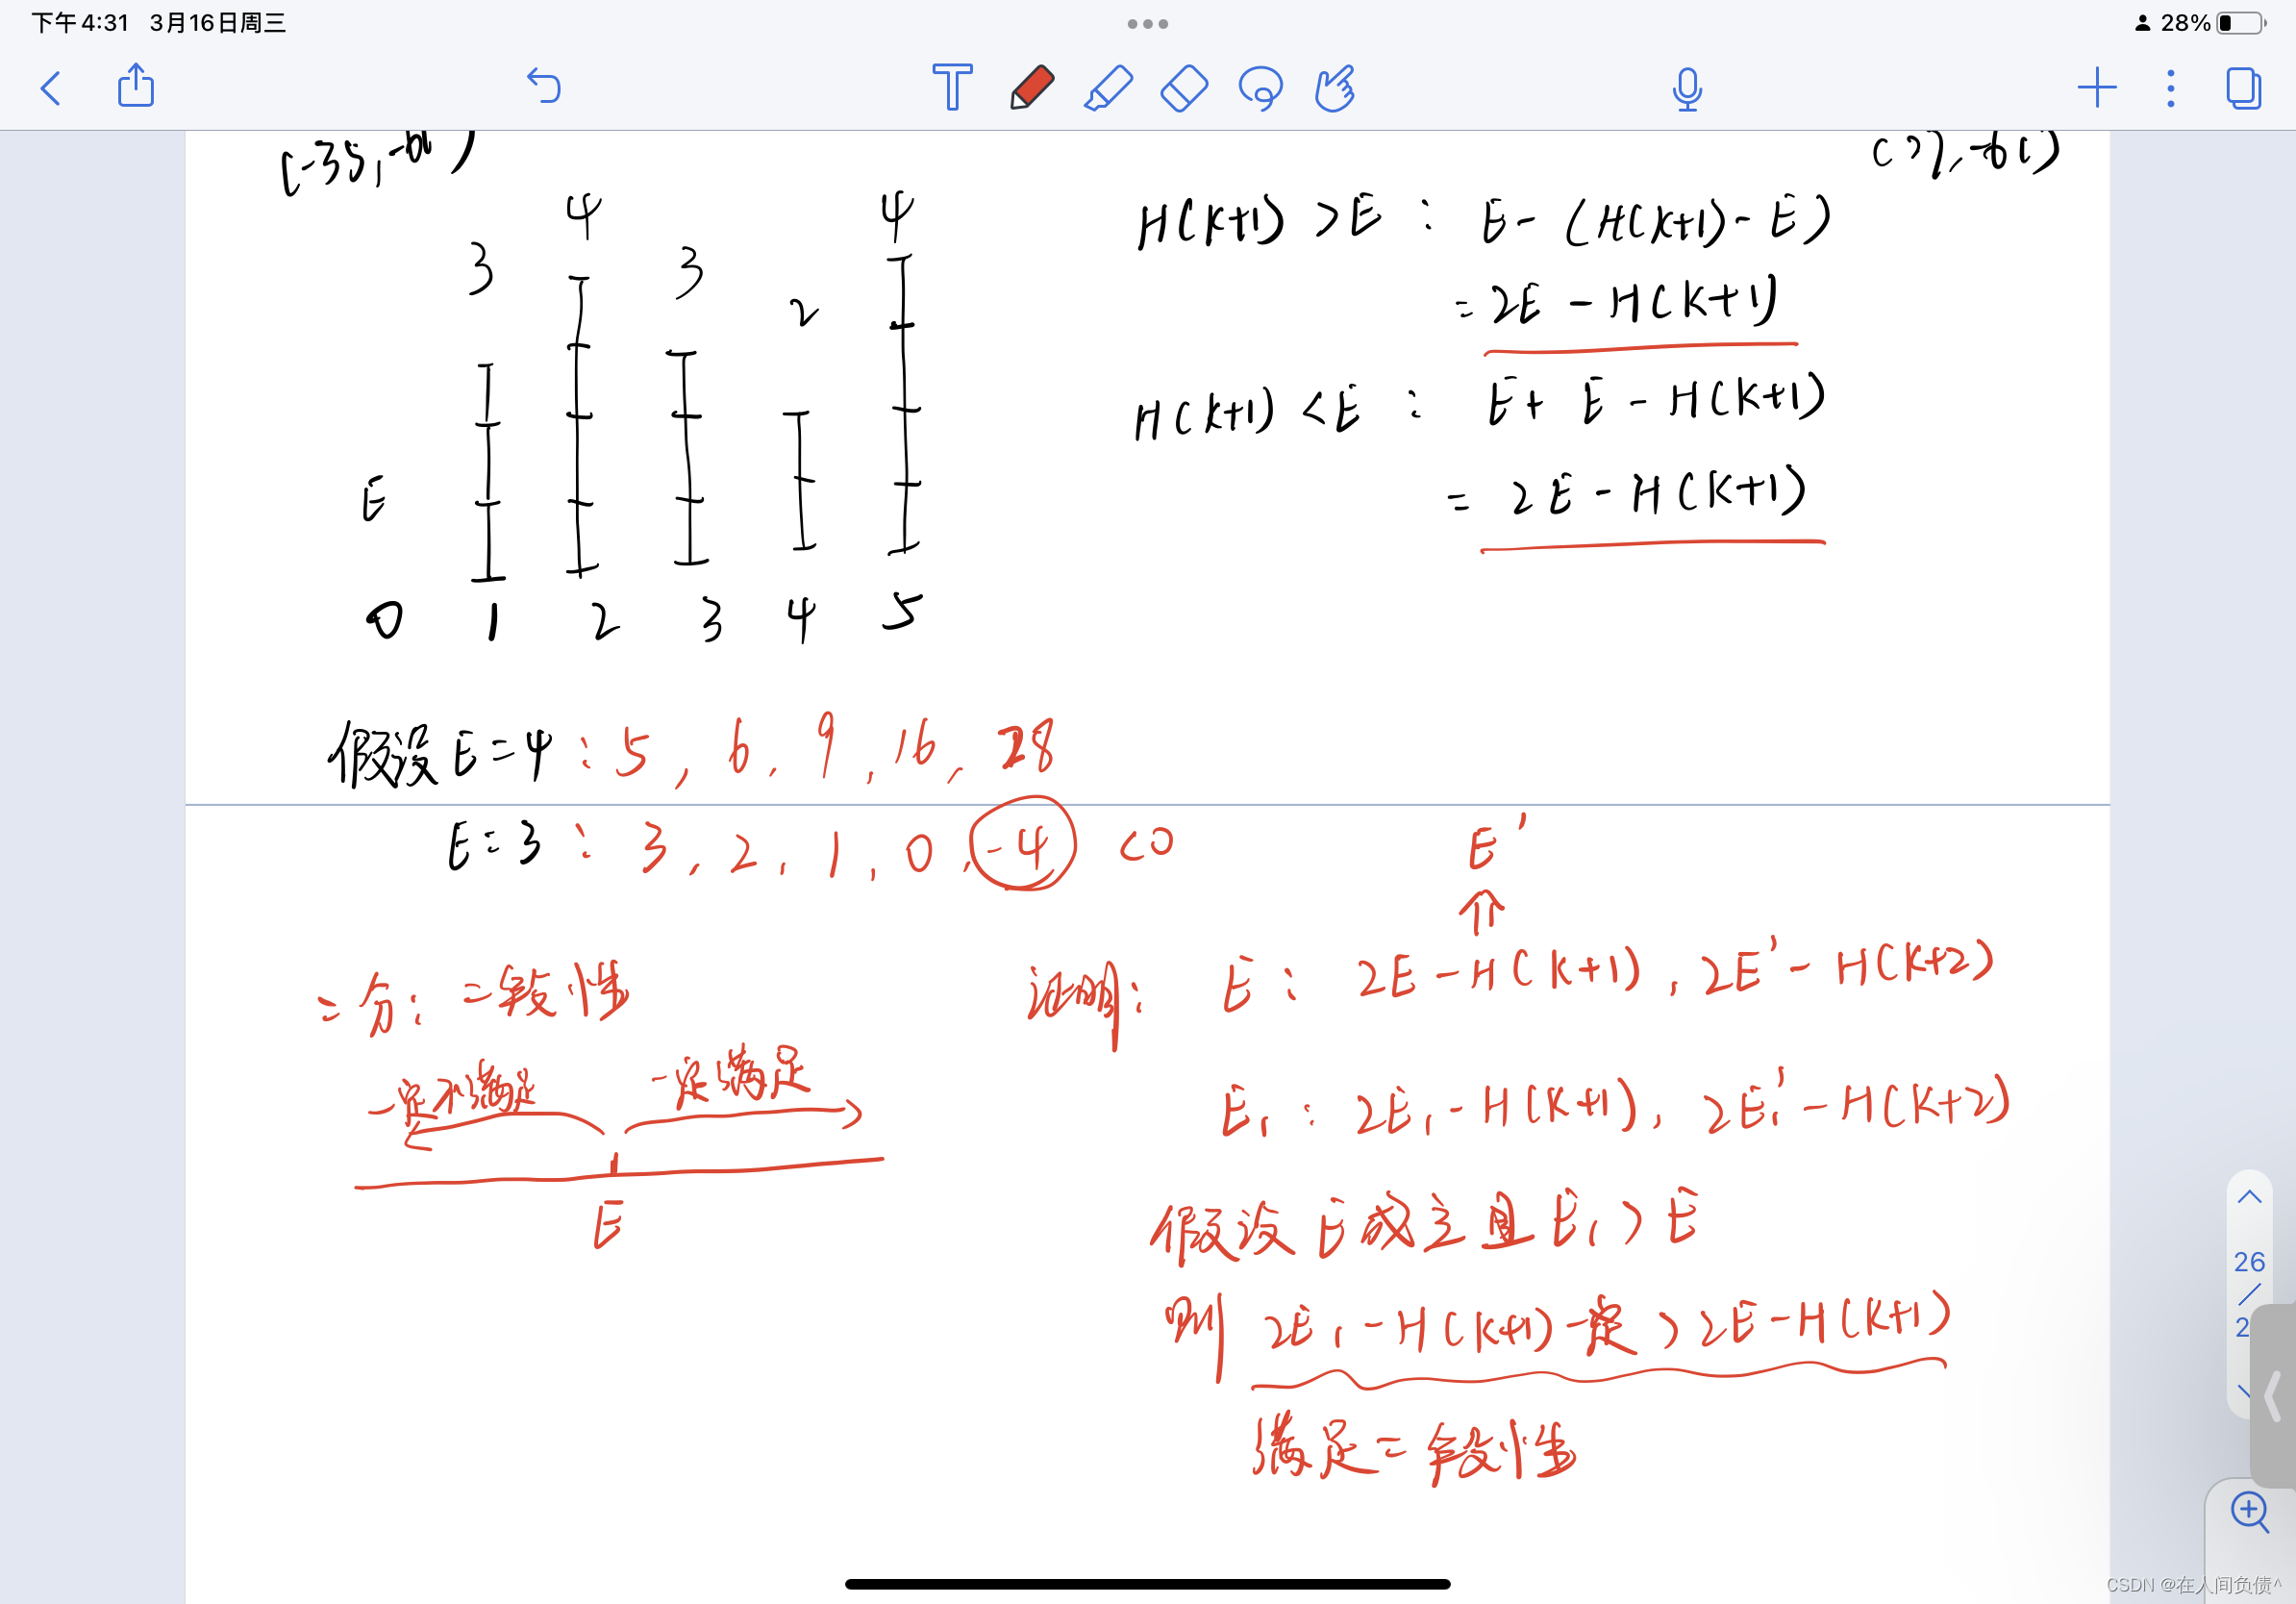 下午4:31 3月16日周三
28%
H(k+1) > E : E - (H(k+1) - E)
= 2E - H(k+1)
H(k+1) < E : E + E - H(k+1)
= 2E - H(k+1)
3 4 3 2 4
E
0 1 2 3 4 5
假设 E=4 : 5, 6, 9, 16, 28
E=3 : 3, 2, 1, 0, -4 <0
E'
⇑
二分: 二段性
一定不满足 一定满足
E
证明: E: 2E - H(k+1), 2E' - H(k+2)
E₁: 2E₁ - H(k+1), 2E₁' - H(k+2)
假设 E 成立且 E₁ > E
则 2E₁ - H(k+1) 一定 > 2E - H(k+1)
满足二段性
26
CSDN @在人间负债^